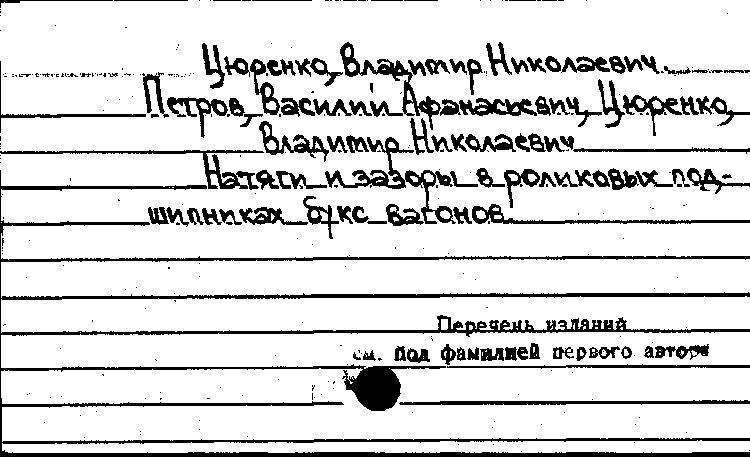 Цюренко, Владимир Николаевич.
Петров, Василий Афанасьевич, Цюренко,
Владимир Николаевич
Натяги и зазоры в роликовых под-
шипниках букс вагонов.
Перечень изданий
см. под фамилией первого автора